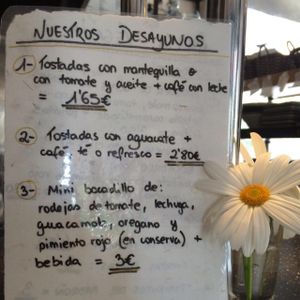 NUESTROS DESAYUNOS
1- Tostadas con mantequilla o
con tomate y aceite + café con leche
= 1'65€
2- Tostadas con aguacate +
café, té o refresco = 2'80€
3- Mini bocadillo de:
rodajas de tomate, lechuga,
guacamole, oregano y
pimiento rojo (en conserva) +
bebida = 3€